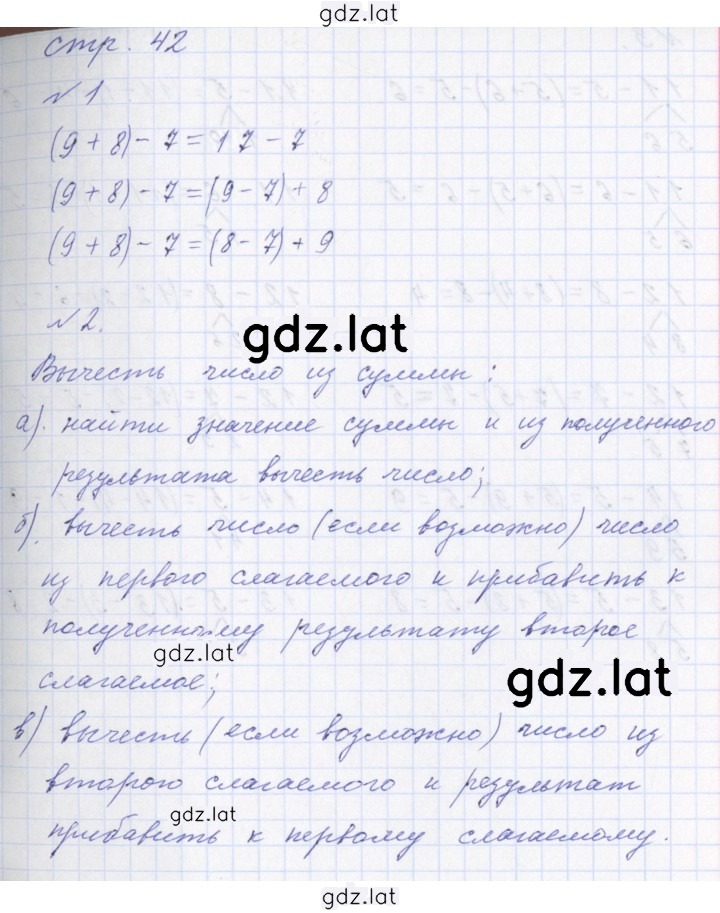 gdz.lat
стр. 42
№ 1
(9 + 8) - 7 = 17 - 7
(9 + 8) - 7 = (9 - 7) + 8
(9 + 8) - 7 = (8 - 7) + 9
№ 2.
gdz.lat
Вычесть число из суммы:
а). найти значение суммы и из полученного
результата вычесть число;
б). вычесть число (если возможно) число
из первого слагаемого и прибавить к
полученному результату второе
gdz.lat
слагаемое;
gdz.lat
в) вычесть (если возможно) число из
второго слагаемого и результат
gdz.lat
прибавить к первому слагаемому.
gdz.lat